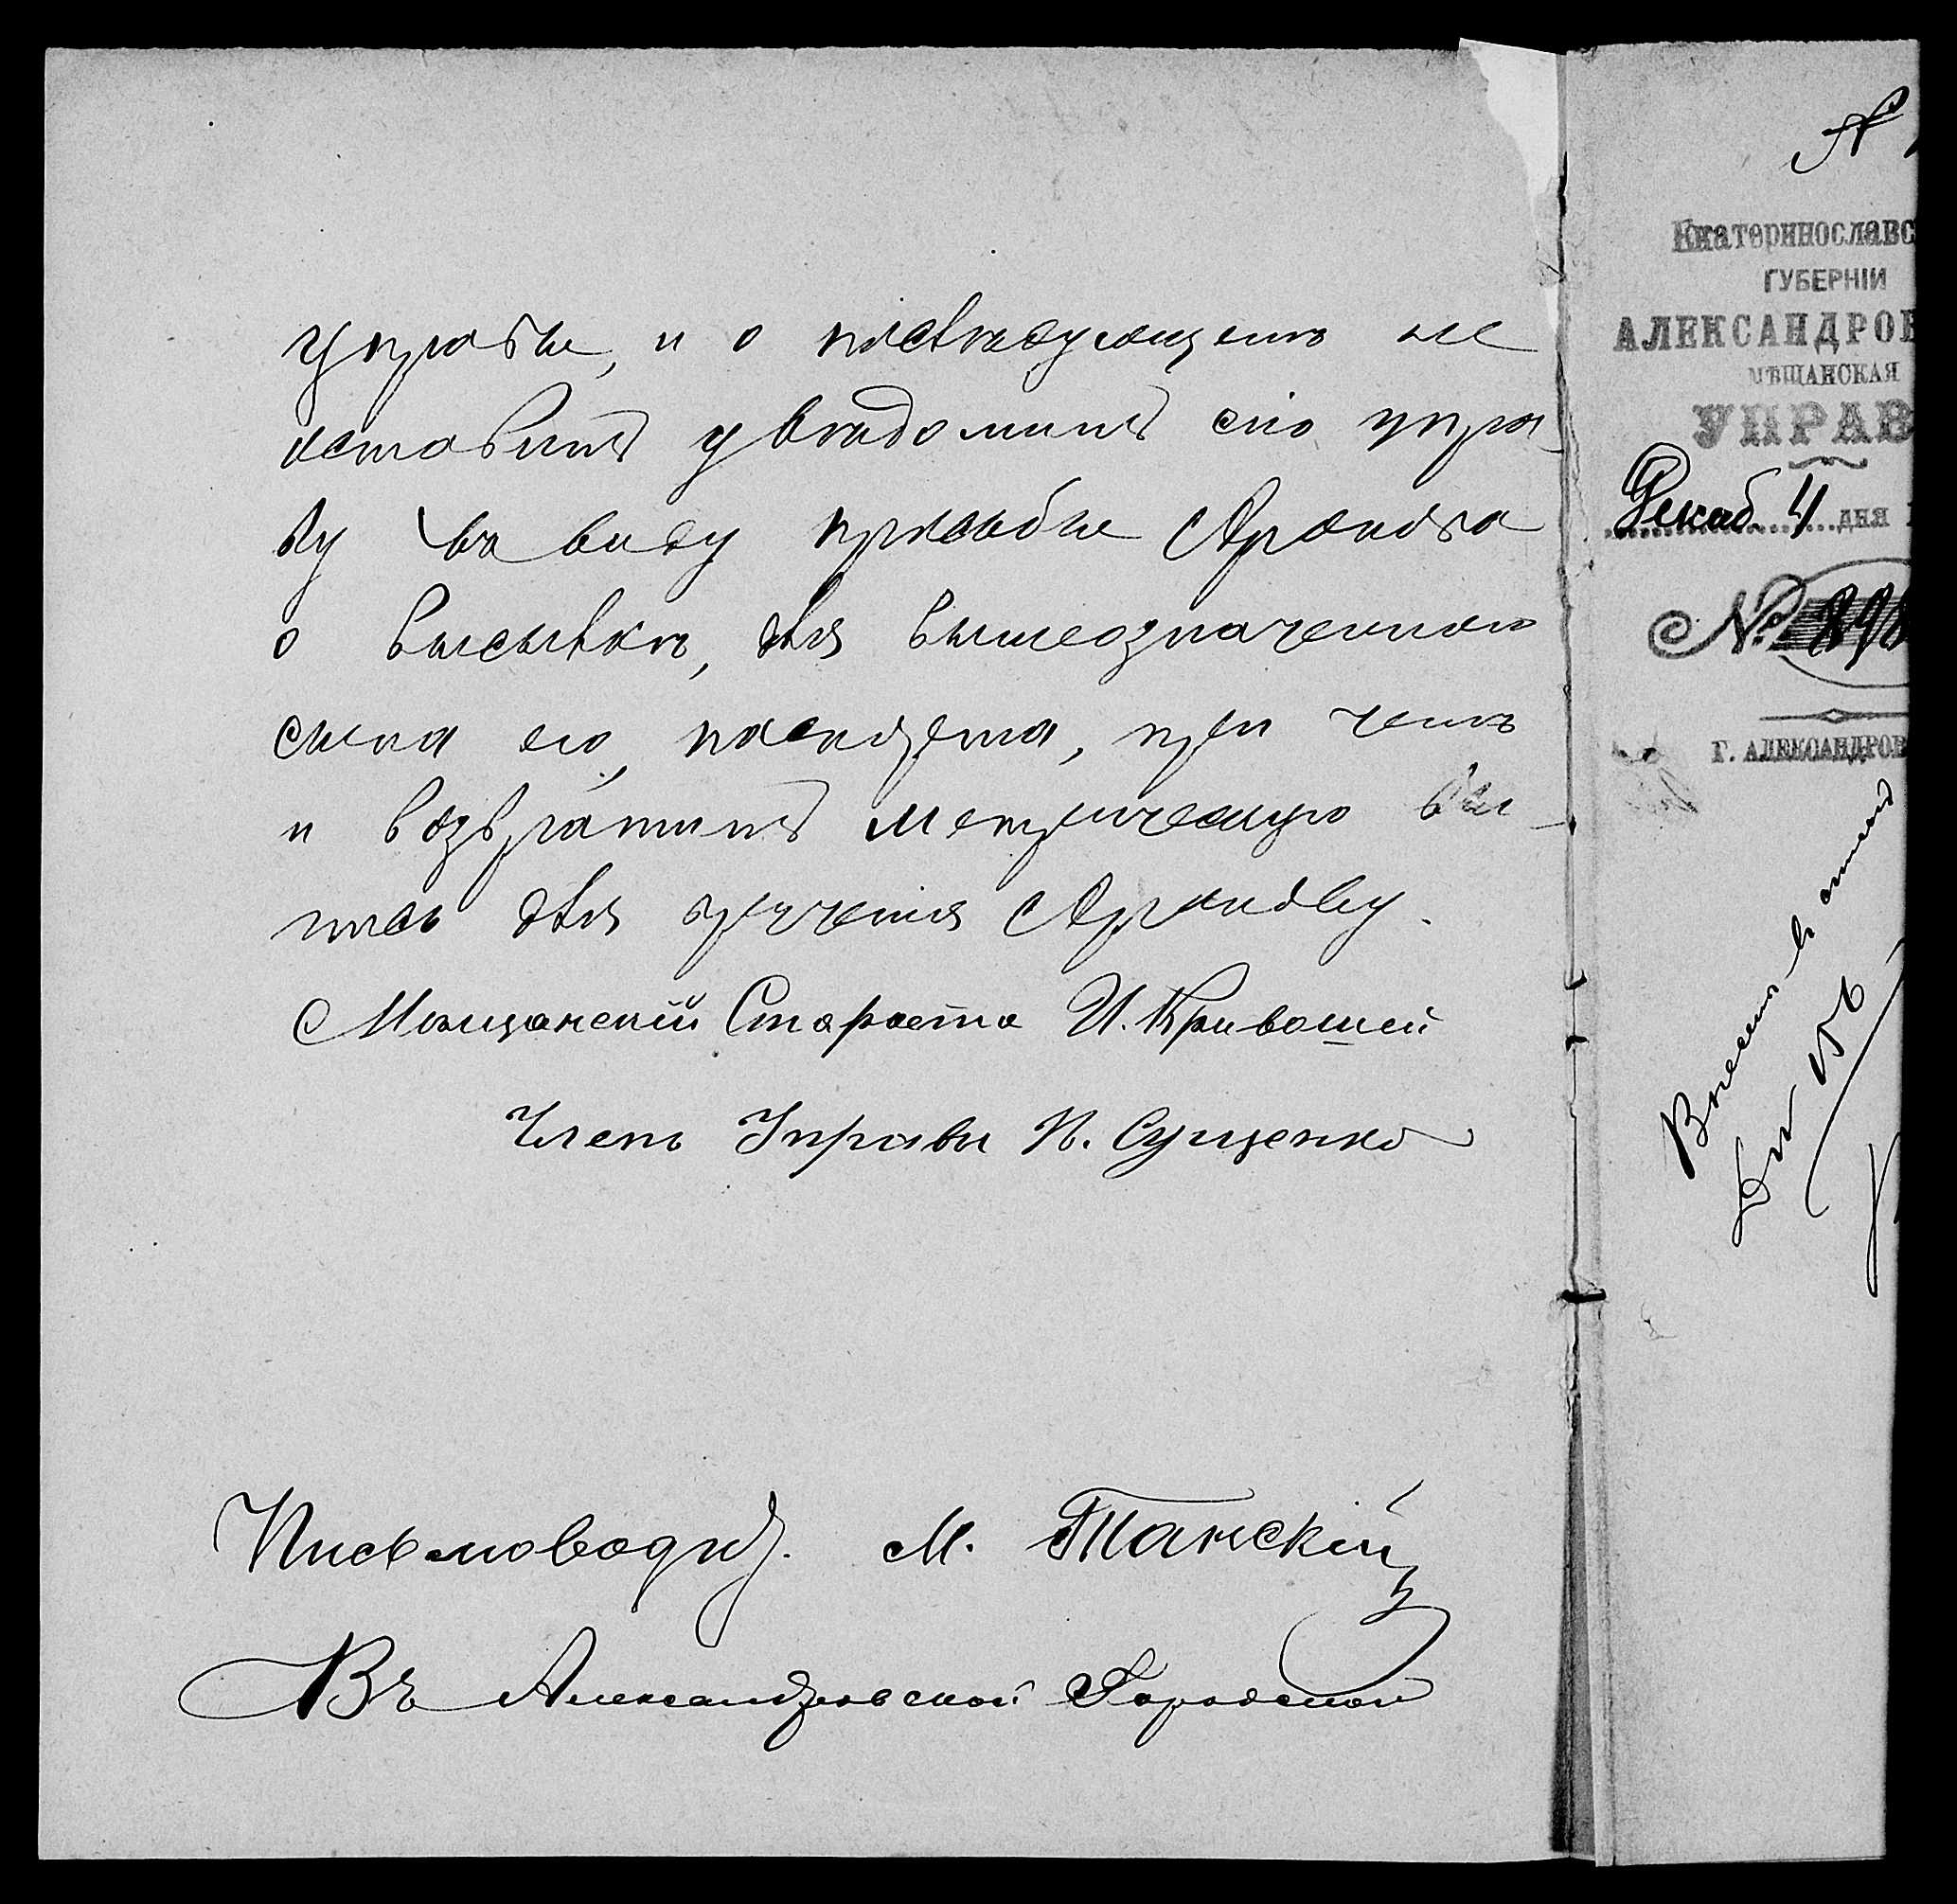 управы, и о послѣдующемъ не
оставить увѣдомить сію упра-
ву въ виду просьбы Аронова
о высылкѣ, для вышеозначеннаго
сына его, паспорта, при чемъ
и возвратить метрическую вы-
пись для врученія Аронову.
Мѣщанскій Староста И. Кривошей
Членъ Управы П. Сущенко
Письмоводит. М. Танскій
Въ Александровской Городской
Екатеринославс
ГУБЕРНІИ
АЛЕКСАНДРОВ
МѢЩАНСКАЯ
УПРАВ
Декаб. 4 дня
№ 898
Г. АЛЕКСАНДРОВ